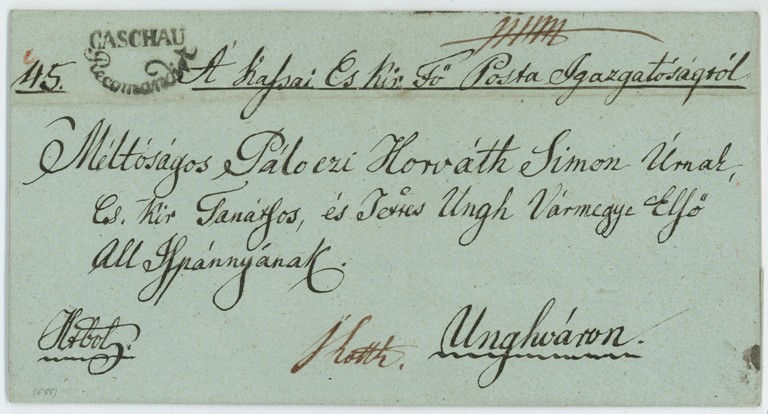 CASCHAU
Recomandirt
45. A Kassai Cs Kir Fő Posta Igazgatóságtól
Méltóságos Pálóczi Horváth Simon Úrnak,
Cs. Kir Tanátsos, és Tettes Ungh Vármegye Elsö
All Ispánnyának.
Unghváron.